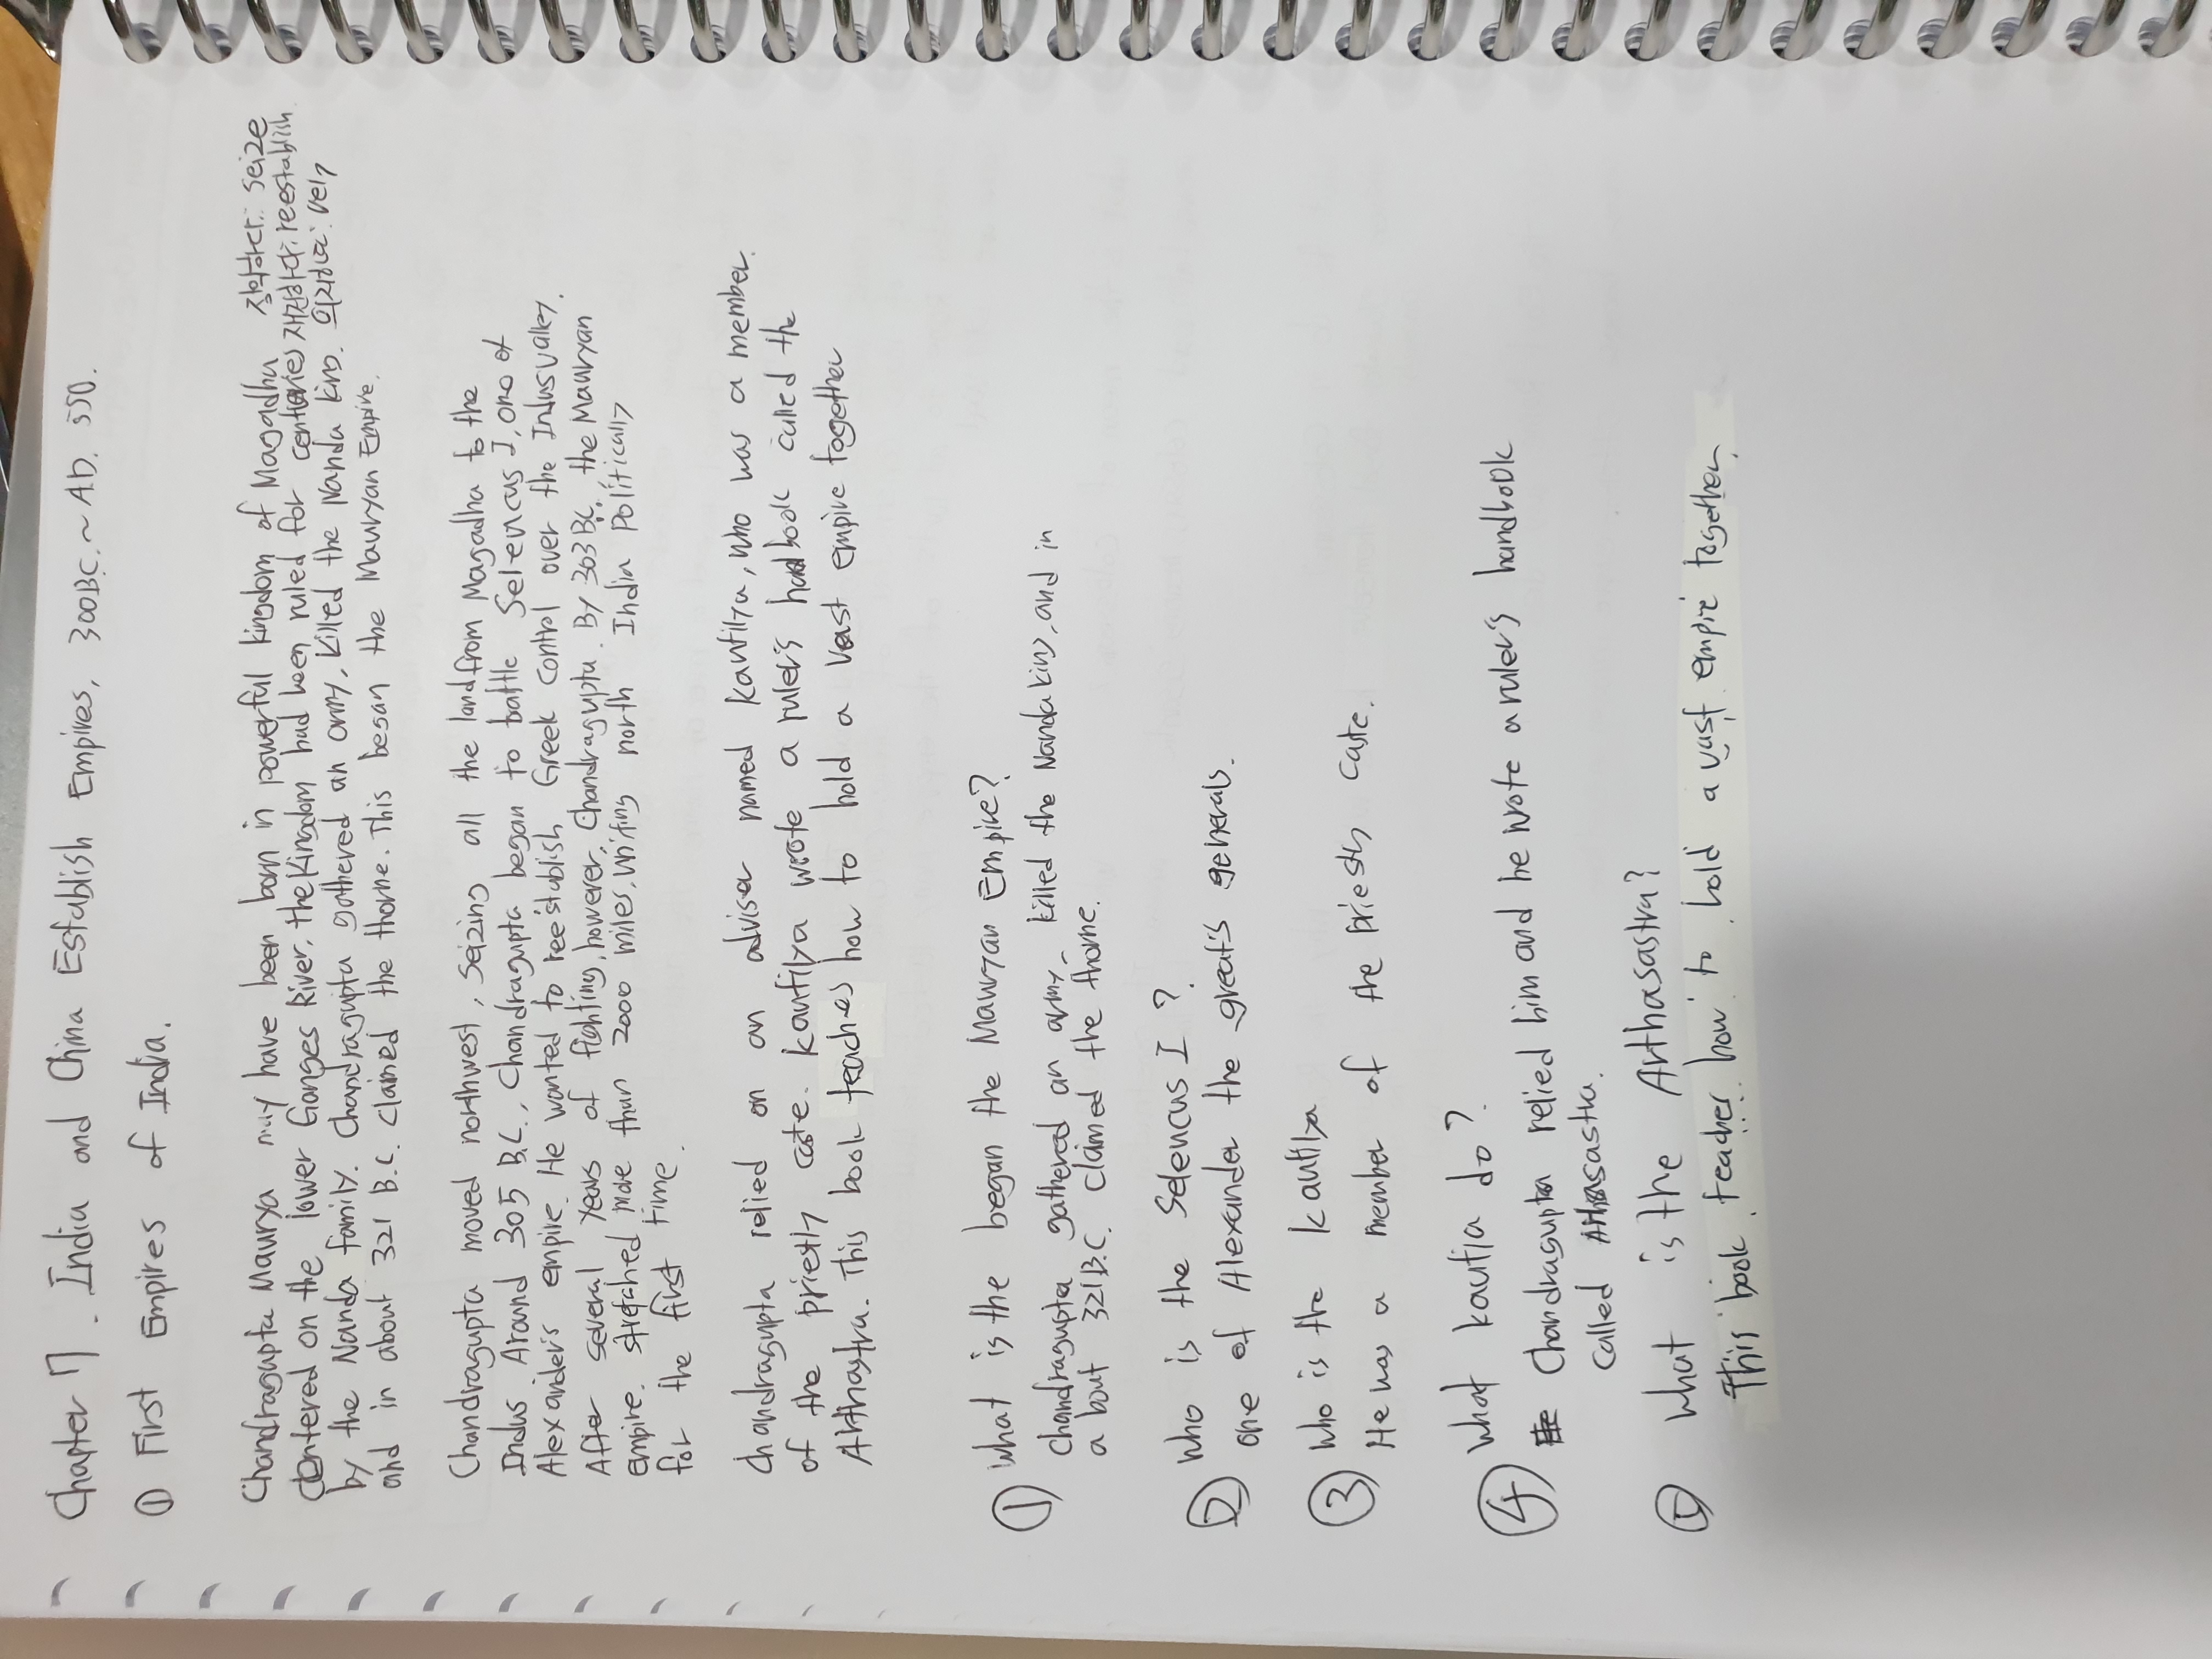 Chapter 7. India and China Establish Empires, 300BC.~ A.D. 550.
① First Empires of India.
Chandragupta Maurya may have been born in powerful kingdom of Magadha
Centered on the lower Ganges River, the kingdom had been ruled for centuries
by the Nanda family. Chandragupta gathered an army, killed the Nanda king.
and in about 321 B.C. claimed the thorne. This began the Mauryan Empire.
장악하다: seize
재건하다: reestablish
의지하다: rely
Chandragupta moved northwest, seizing all the land from Magadha to the
Indus Around 305 B.C, Chandragupta began to battle Seleucus I, one of
Alexander's empire. He wanted to reestablish Greek control over the Indus valley.
After several years of fighting, however, Chandragupta. By 303 BC, the Mauryan
empire. stretched more than 2000 miles, uniting north India politically
for the first time.
Chandragupta relied on an adviser named kautilya, who was a member.
of the priestly caste. kautilya wrote a ruler's handbook called the
Arthrastra. This book teaches how to hold a vast empire together
① What is the began the Mauryan Empire?
Chandragupta gathered an army_ killed the Nanda king, and in
a bout 321 B.C. Claimed the thorne.
② Who is the Seleucus I ?
one of Alexander the great's generals.
③ Who is the kautilya
He was a member of the priestly caste.
④ What kautia do ?
Chandragupta relied him and he wrote a ruler's handbook
called Arthasastra.
⑤ What is the Arthasastra?
This book teacher how to hold a vast empire together,